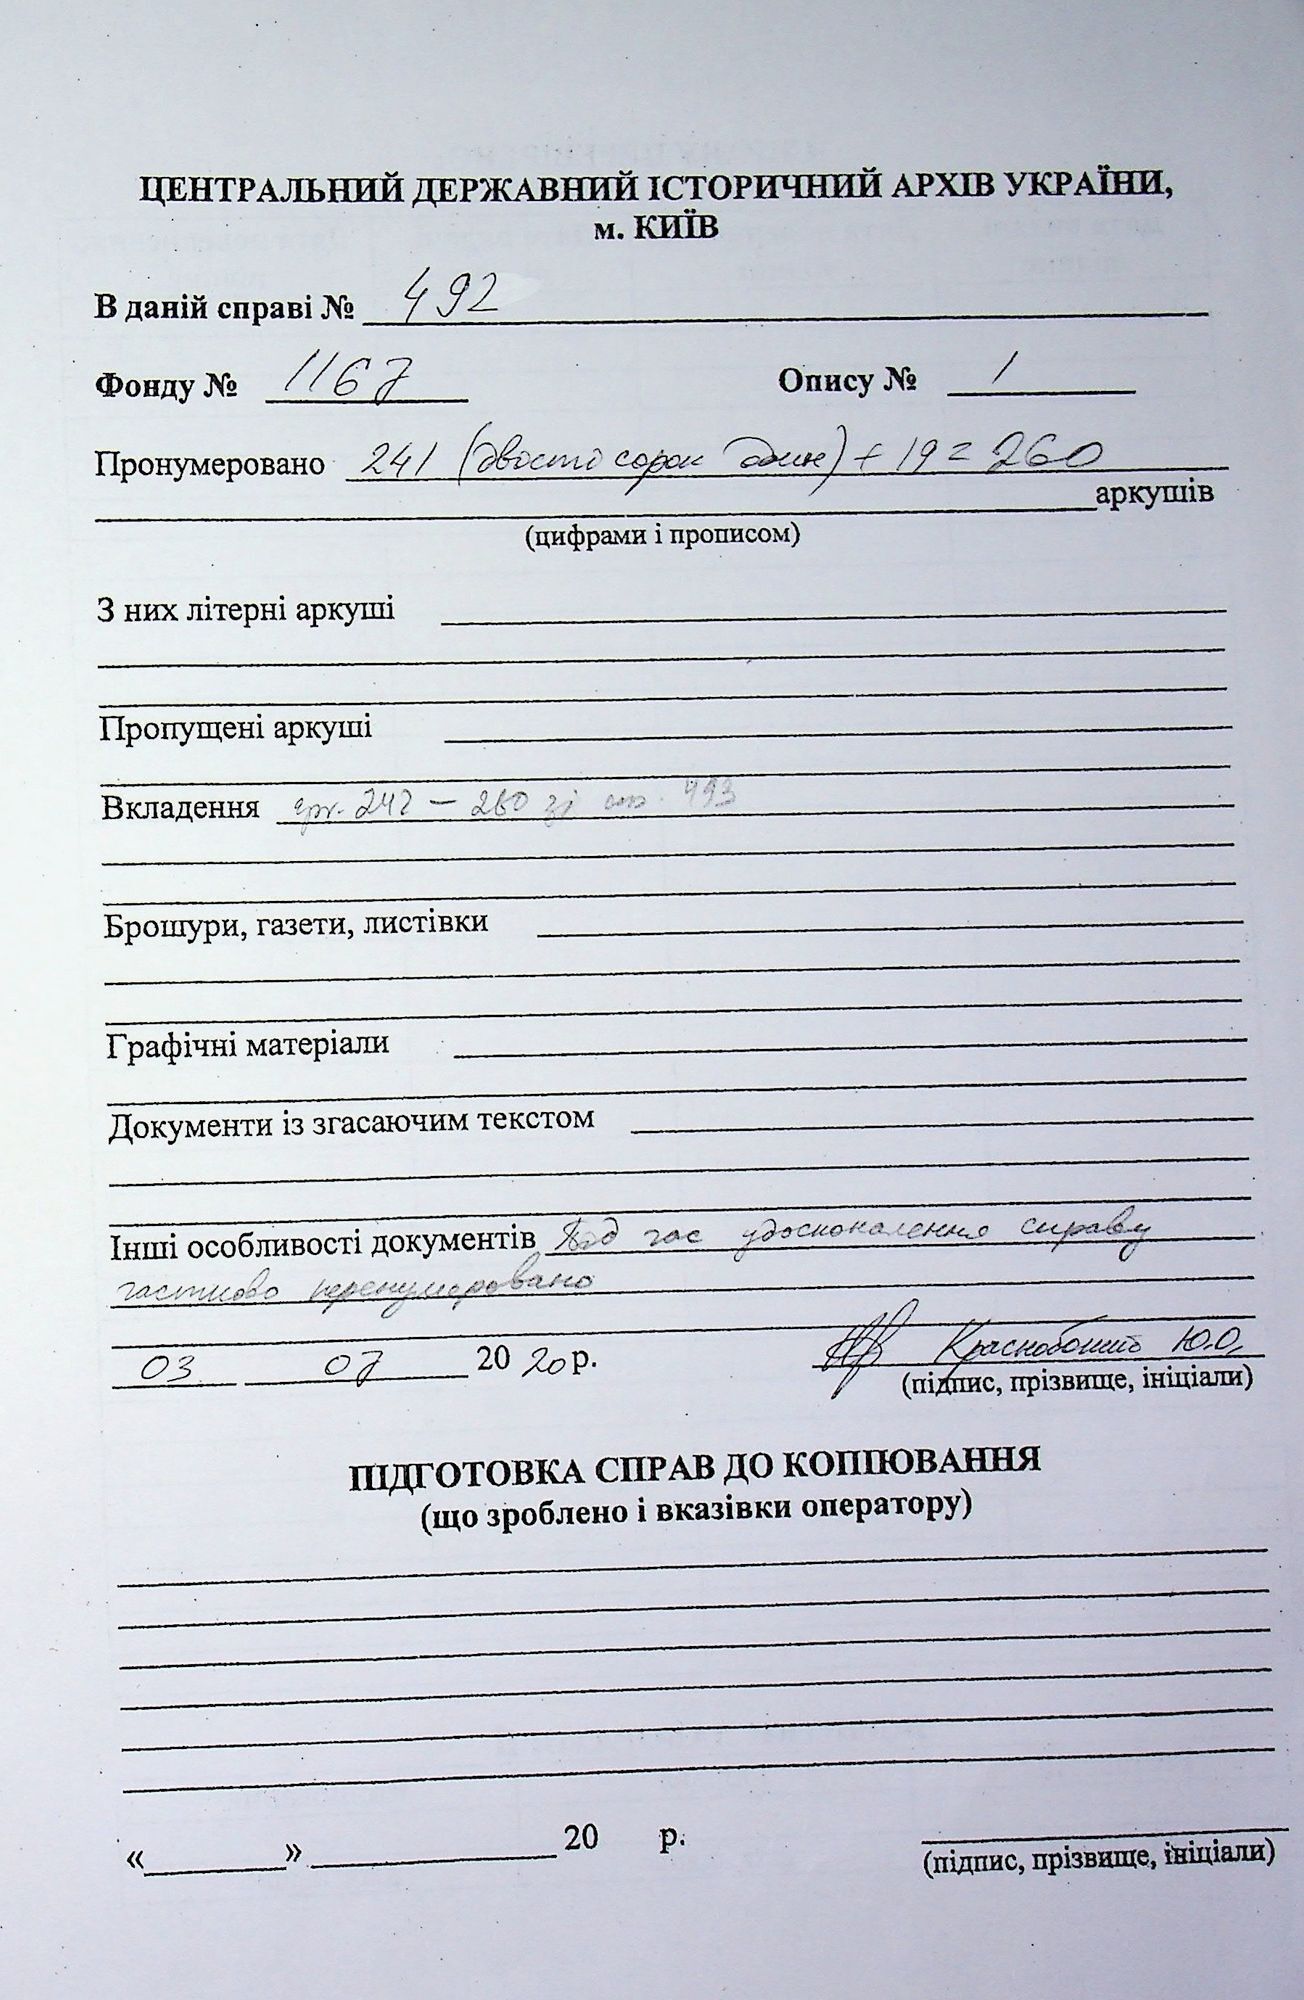 ЦЕНТРАЛЬНИЙ ДЕРЖАВНИЙ ІСТОРИЧНИЙ АРХІВ УКРАЇНИ,
м. КИЇВ
В даній справі № 492
Фонду № 1167 Опису № 1
Пронумеровано 241 (двісті сорок один) + 19 = 260
аркушів
(цифрами і прописом)
З них літерні аркуші
Пропущені аркуші
Вкладення арк. 242 – 260 зі спр. 493
Брошури, газети, листівки
Графічні матеріали
Документи із згасаючим текстом
Інші особливості документів Під час удосконалення справу
частково перенумеровано
03 07 20 20 р. Ю.О.
(підпис, прізвище, ініціали)
ПІДГОТОВКА СПРАВ ДО КОПІЮВАННЯ
(що зроблено і вказівки оператору)
«       » 20 р.
(підпис, прізвище, ініціали)